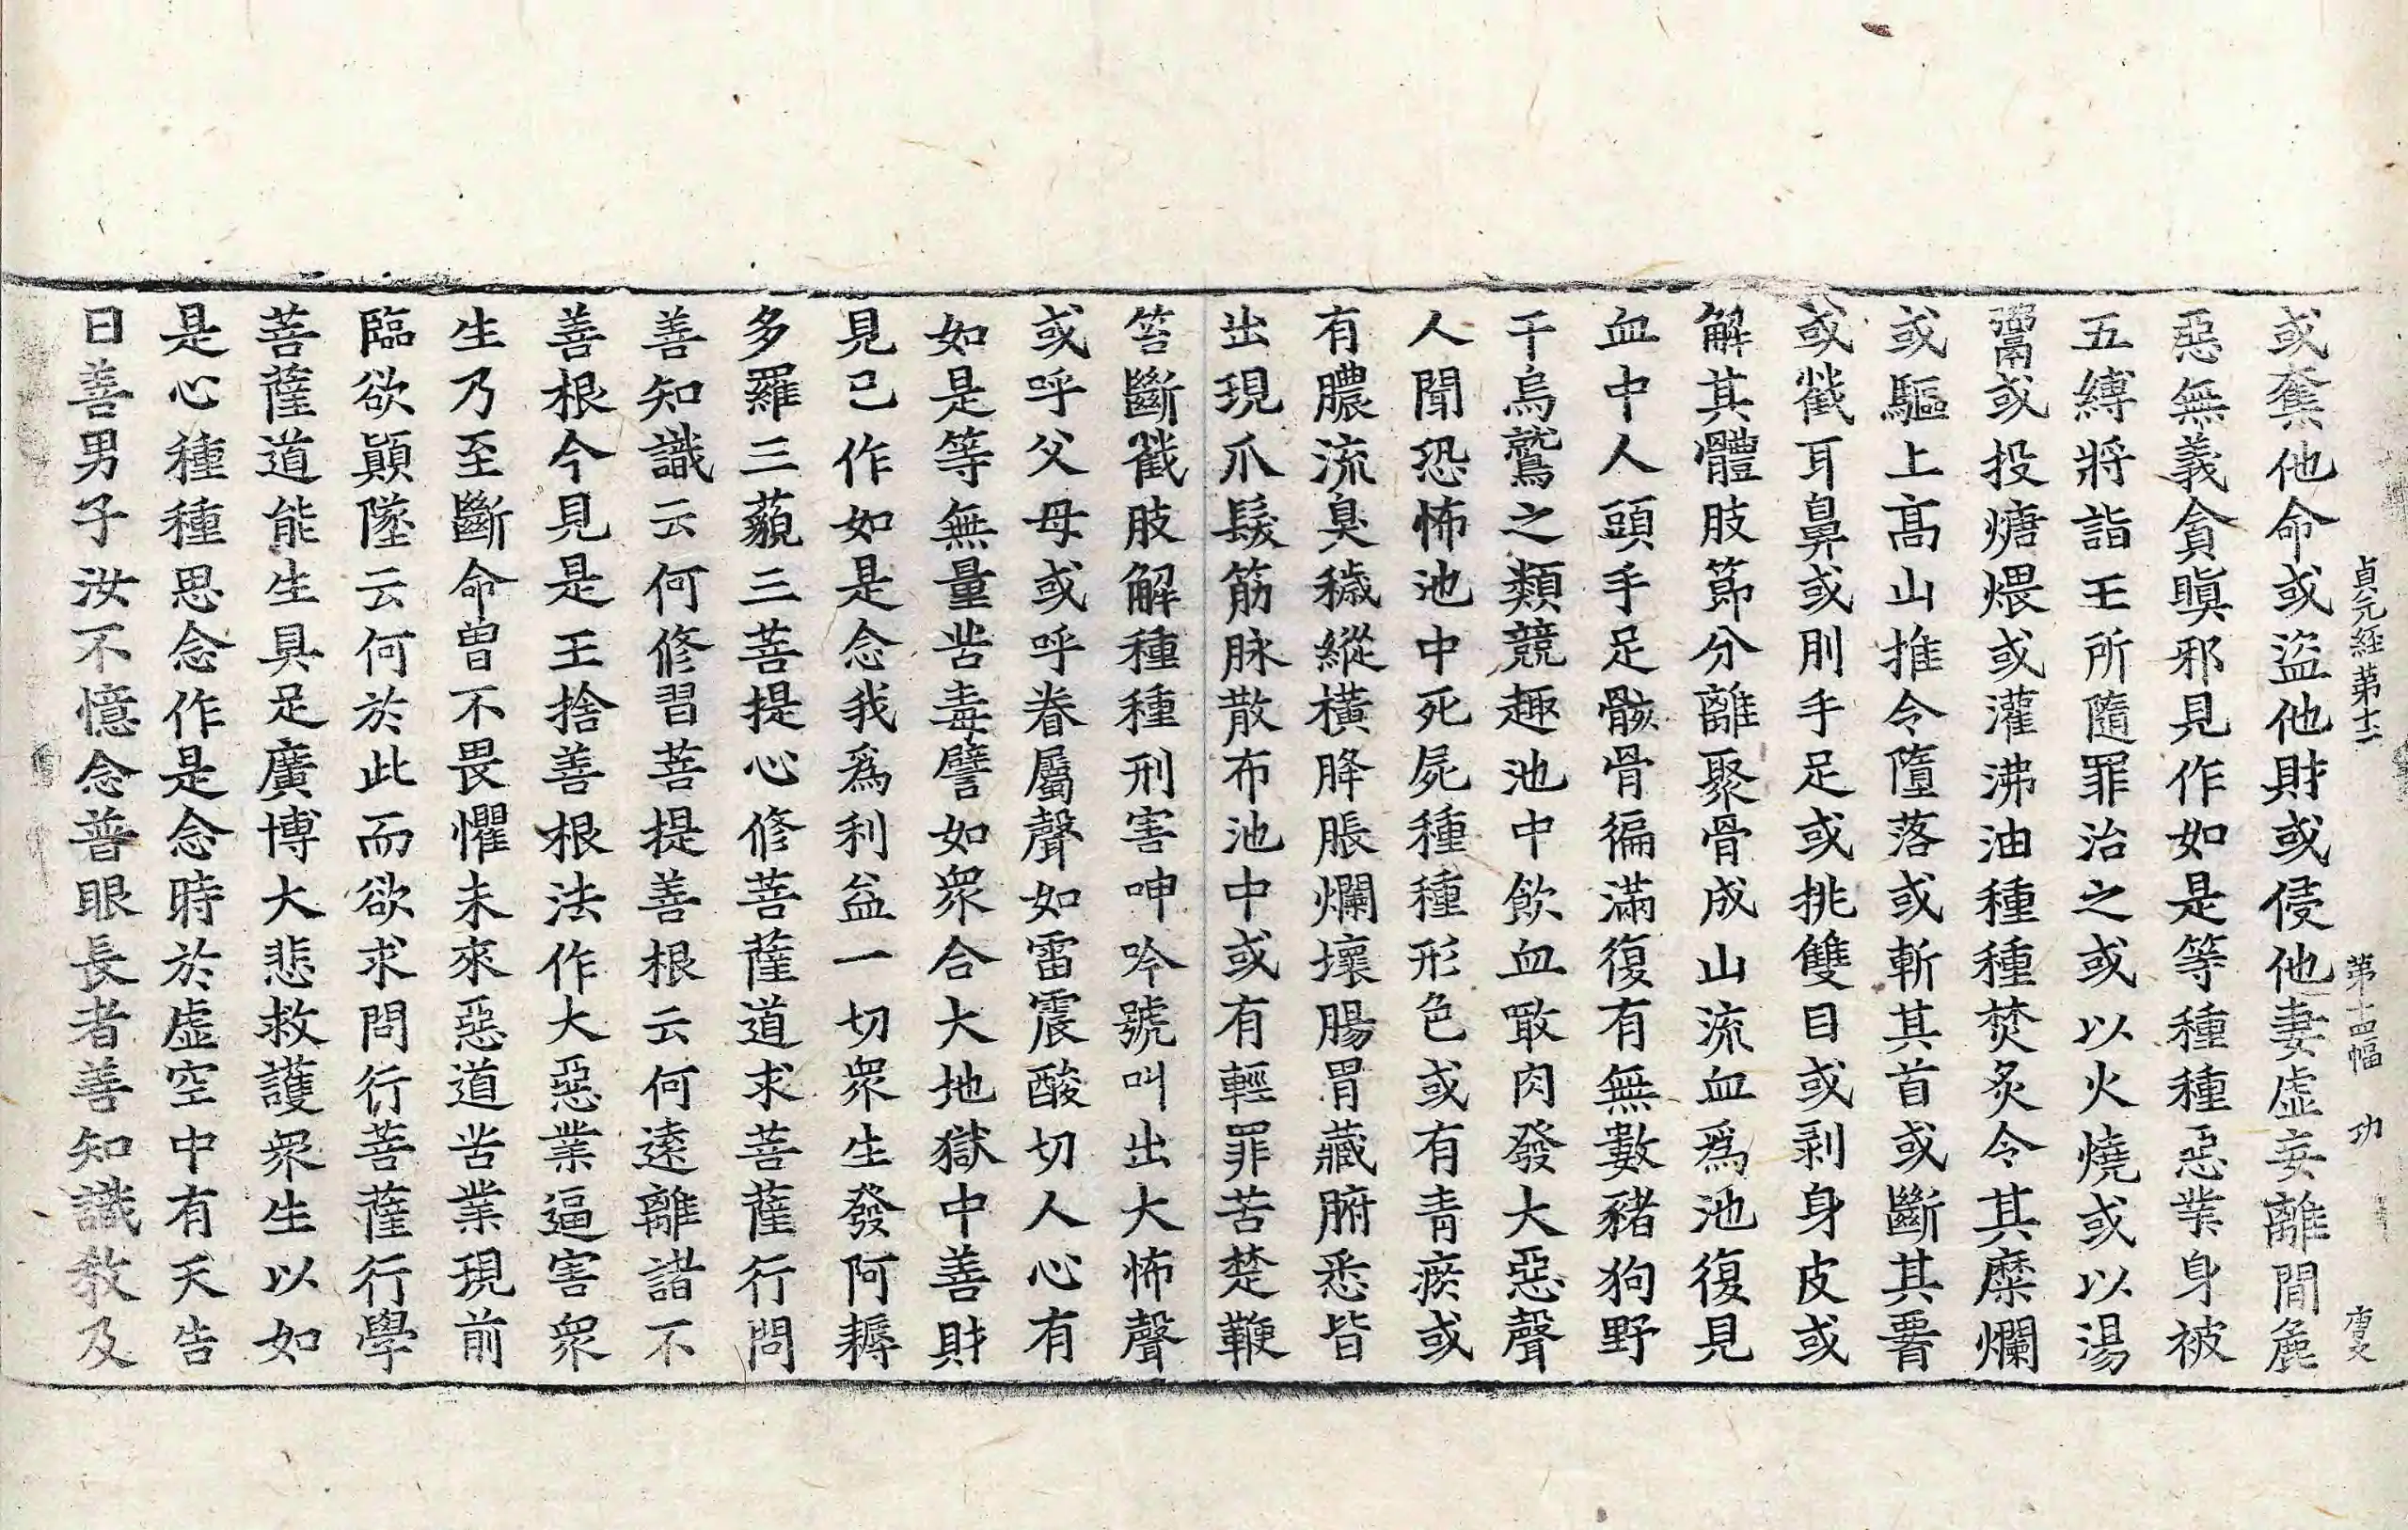 貞元経第十二　第十四幅　功
或奪他命或盜他財或侵他妻虛妄離間麁
惡無義貪瞋邪見作如是等種種惡業身被
五縛將詣王所隨罪治之或以火燒或以湯
鬻或投煻煨或灌沸油種種焚炙令其糜爛
或驅上高山推令墮落或斬其首或斷其脣
或截耳鼻或刖手足或挑雙目或剥身皮或
解其體肢節分離聚骨成山流血爲池復見
血中人頭手足骸骨徧滿復有無數豬狗野
干烏鷲之類競趣池中飲血噉肉發大惡聲
人聞恐怖池中死屍種種形色或有青瘀或
有膿流臭穢縱橫胮脹爛壞腸胃藏腑悉皆
出現爪髮筋脉散布池中或有輕罪苦楚鞭
笞斷截肢解種種刑害呻吟號叫出大怖聲
或呼父母或呼眷屬聲如雷震酸切人心有
如是等無量苦毒譬如衆合大地獄中善財
見已作如是念我爲利益一切衆生發阿耨
多羅三藐三菩提心修菩薩道求菩薩行問
善知識云何修習菩提善根云何遠離諸不
善根今見是王捨善根法作大惡業逼害衆
生乃至斷命曾不畏懼未來惡道苦業現前
臨欲顚墜云何於此而欲求問行菩薩行學
菩薩道能生具足廣博大悲救護衆生以如
是心種種思念作是念時於虛空中有天告
曰善男子汝不憶念普眼長者善知識教及